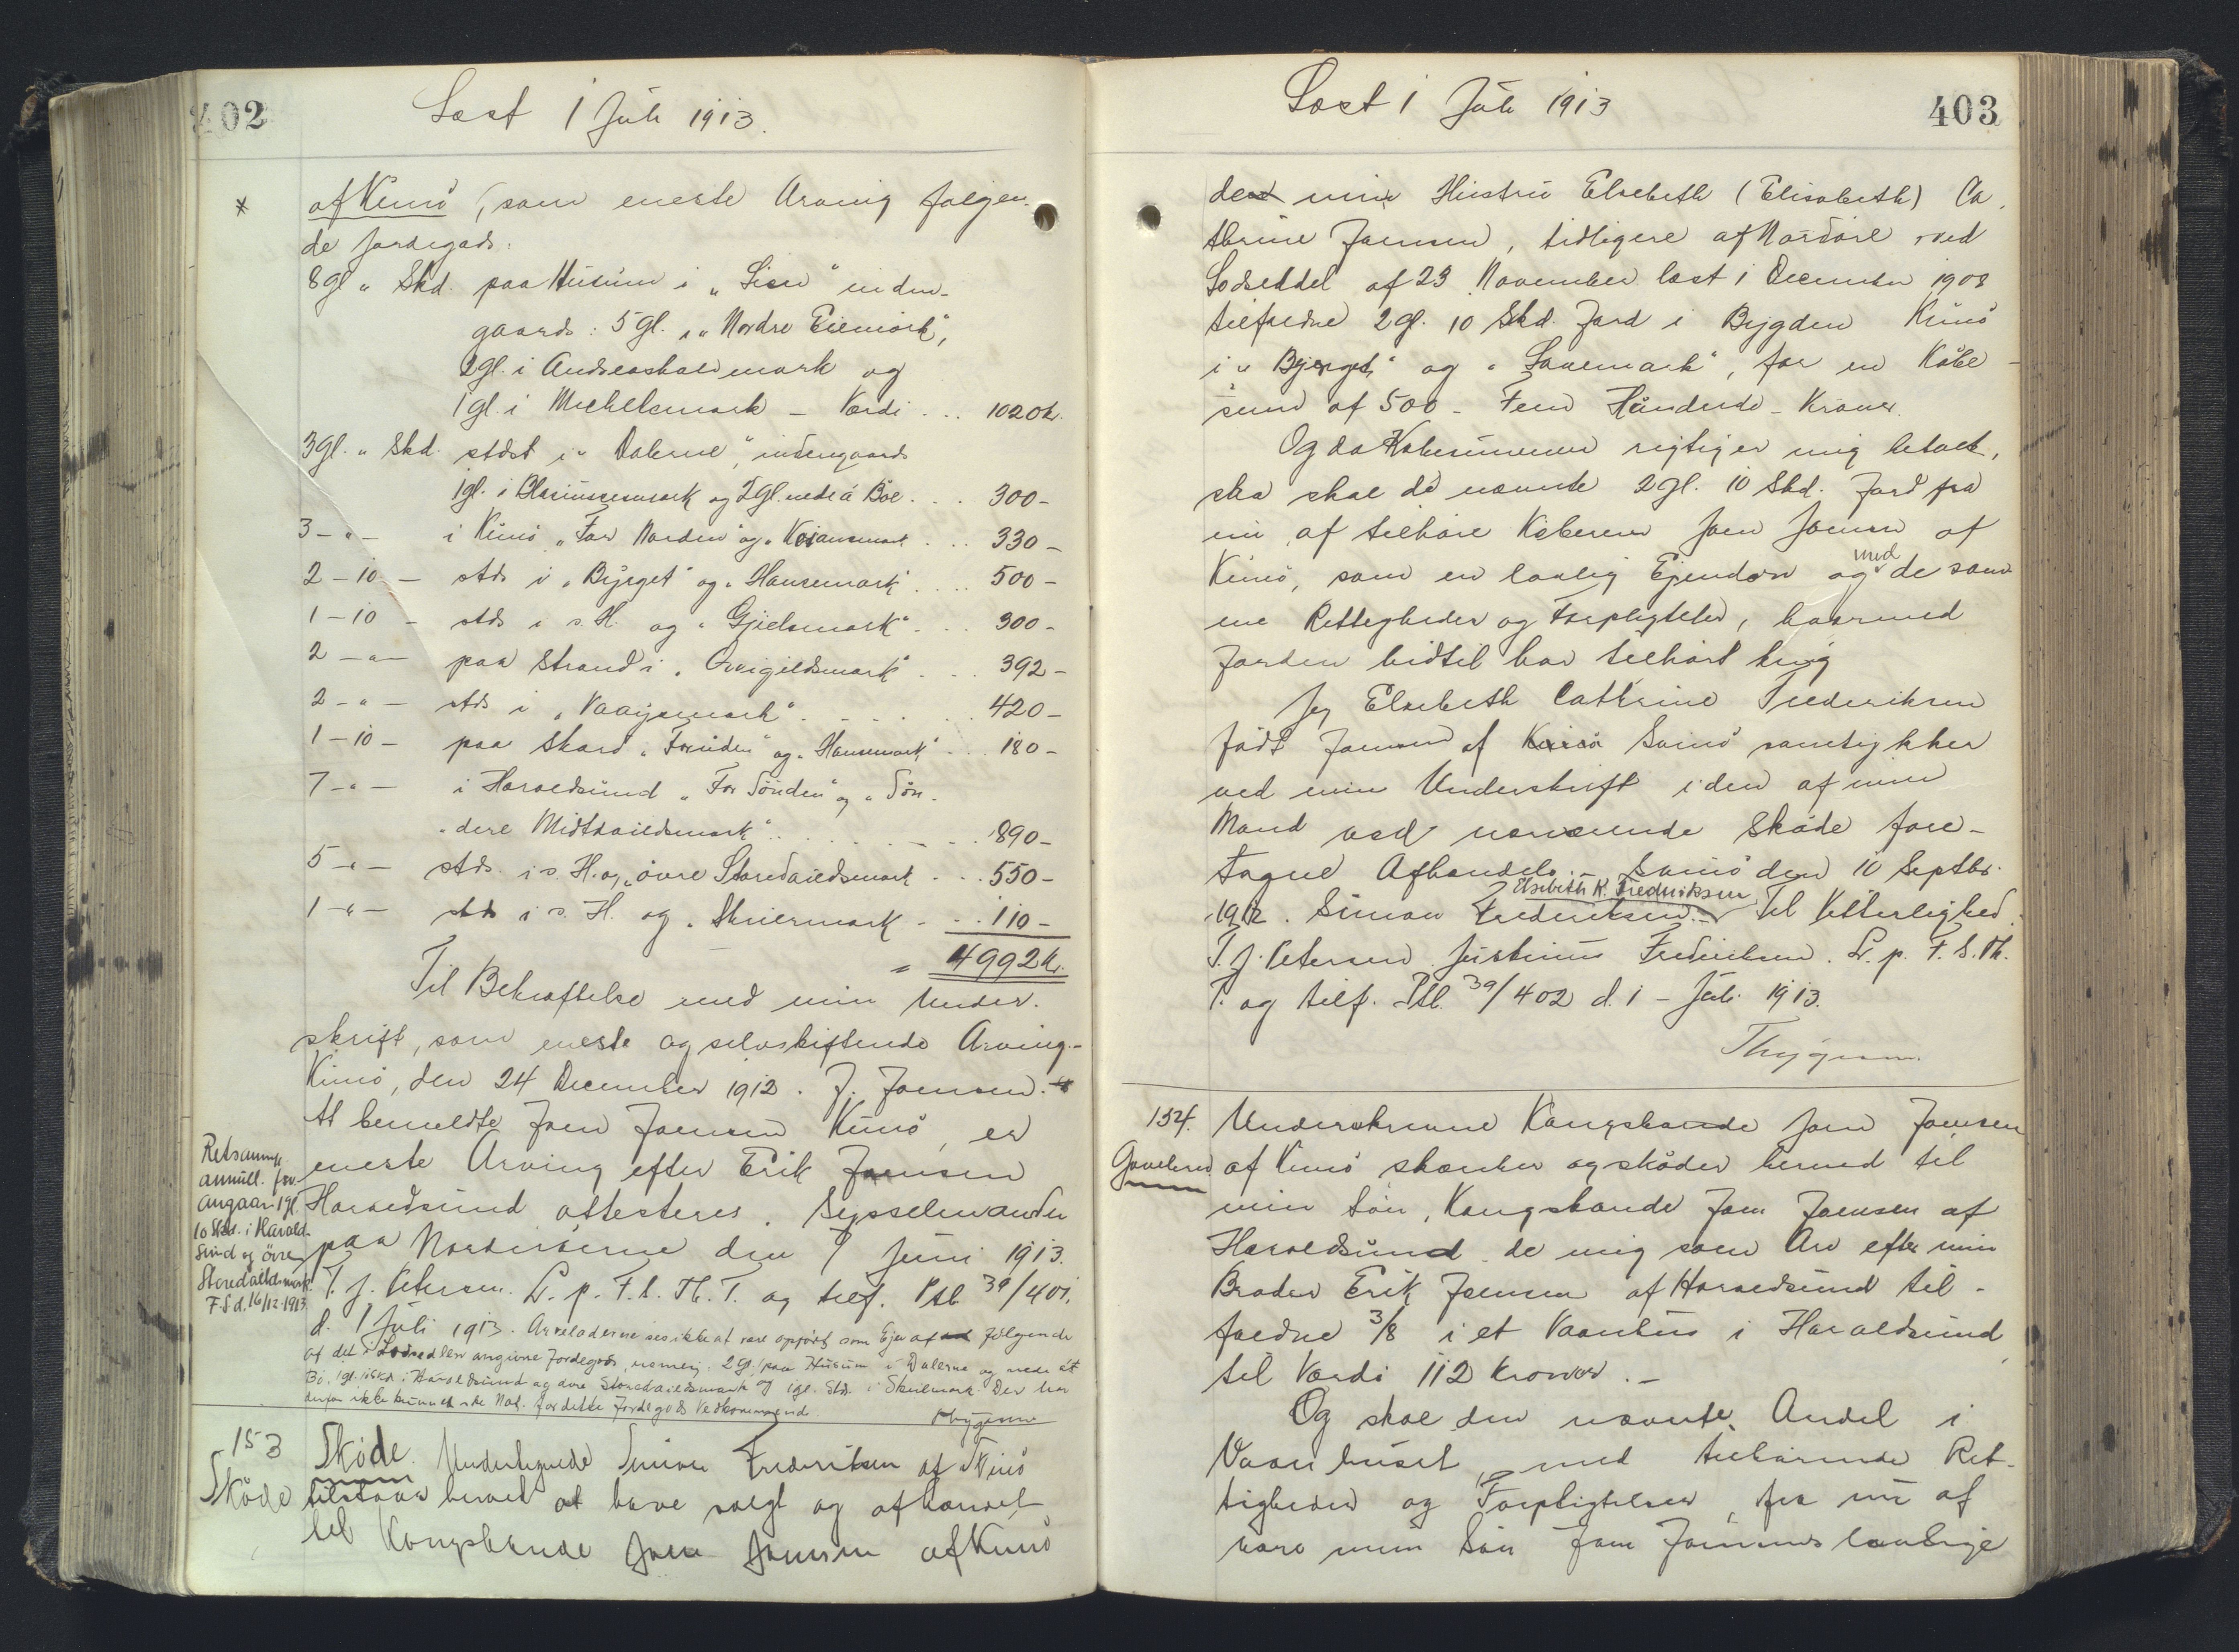 402
Læst 1 Juli 1913.
* af Kunø, som eneste Arving følgen-
de Jordegods:
8 gl „ Skd. paa Husum i „Lien“ inden-
gaards: 5 gl. i „Nordre Eiemørk“,
2 gl. i Andreaskaldmørk og
1 gl. i Michelsmørk – Værdi ... 1020 kr.
3 gl. „ Skd. stdst i „Dalerne“, indengaards
1 gl. i Blasiussesmørk og 2 gl. nedr á Bøe ... 300 –
3 – „ – i Kunø „Før Norden“ og ... 330 –
2 – 10 – stds i „Bÿrget“ og „Hansemørk“ .... 500 –
1 – 10 – stds i s. H. og „Gjielsmørk“ ... 300 –
2 – „ – paa Strand i „ ... 392 –
2 – „ – stds i „Vaagsmørk“ ... 420 –
1 – 10 – paa Skard og „Hansemørk“ ... 180 –
7 – „ – i Haroldsund „Før Sønden“ og „Søn-
dere Midtdaildsmørk“ ... 890 –
5 – „ – stds. i s. H. og „øvre Storedaildsmørk ... 550 –
1 – „ – stds i s. H. og „Skuermørk ... 110 –
= 4992 kr.
Til Bekræftelse med min Under-
skrift, som eneste og selvskiftende Arving.–
Kunø, den 24 December 1912. J. Joensen.
At bemeldte Joen Joensen Kunø, er
eneste Arving efter Erik Joensen
Haroldsund attesteres. Sysselmanden
paa Norderøerne den 7 Juni 1913.
T. J. Petersen. L. p. F. S. Th. T. og tilf. Ptl. 39/401.
d. 1 Juli 1913. Arveladeren ses ikke at være opført som Ejer af følgende
af det i Lodsedlen angivne Jordegods, nemlig: 2 gl. paa Husum i Dalerne og nedr át
Bø, 1 gl. 10 Skd. i Haroldsund og øvre Storedaildsmørk og 1 gl. stds. i Skuermørk. Der har
derfor ikke kunnet ske Not. for dette Jordegods Vedkommende. Thygesen
Retsanm.
annull. for-
angaar. 1 gl.
10 Skd. i Harald-
sund og øvre
Storedaildsmørk.
F. S. d. 16/12-1913.
153
Skøde
Skøde. Undertegnede Simon Frederiksen af Svinø
tilstaar herved at have solgt og afhændet
til Kongsbonde Joen Joensen af Kunø
Læst 1 Juli 1913
403
den min Hustru Elsebeth (Elisabeth) Ca-
thrine Joensen, tidligere af Nordøre ved
Lodseddel af 23 November læst 1 December 1908
tilfaldne 2 gl. 10 Skd. Jord i Bygden Kunø
i „Bjerget“ og „ “, for en Købe-
sum af 500 – Fem Hundrede – Kroner.
Og da Købesummen rigtig er mig betalt,
saa skal de nævnte 2 gl. 10 Skd. Jord fra
nu af tilhøre Køberen Joen Joensen af
Kunø, som en lovlig Ejendom og med de sam-
me Rettigheder og Forpligtelser, hvormed
Jorden hidtil har tilhørt mig
Jeg Elsebeth Cathrine Frederiksen
født Joensen af Svinø samtykker
ved min Underskrift i den af min
Mand ved nærværende Skøde fore-
tagne Afhændels. – Svinø den 10 Septbr.
1912. Simon Frederiksen. – Elsebeth K. Fredriksen Til Vitterlighed
T. J. Petersen Justinus Frederiksen. L. p. F. S. Th.
T. og tilf. Ptl. 39/402 d. 1 – Juli 1913.
Thygesen.
154.
Gavebrev
Underskrevne Kongsbonde Joen Joensen
af Kunø skænker og skøder herved til
min Søn, Kongsbonde Joen Joensen af
Haroldsund de mig som Arv efter min
Broder Erik Joensen af Haroldsund til-
faldne 3/8 i et Vaanhus i Haroldsund
til Værdi 112 Kroner. –
Og skal den nævnte Andel i
Vaanhuset, med tilhørende Ret-
tigheder og Forpligtelser, fra nu af
være min Søn Joen Joensens lovlige